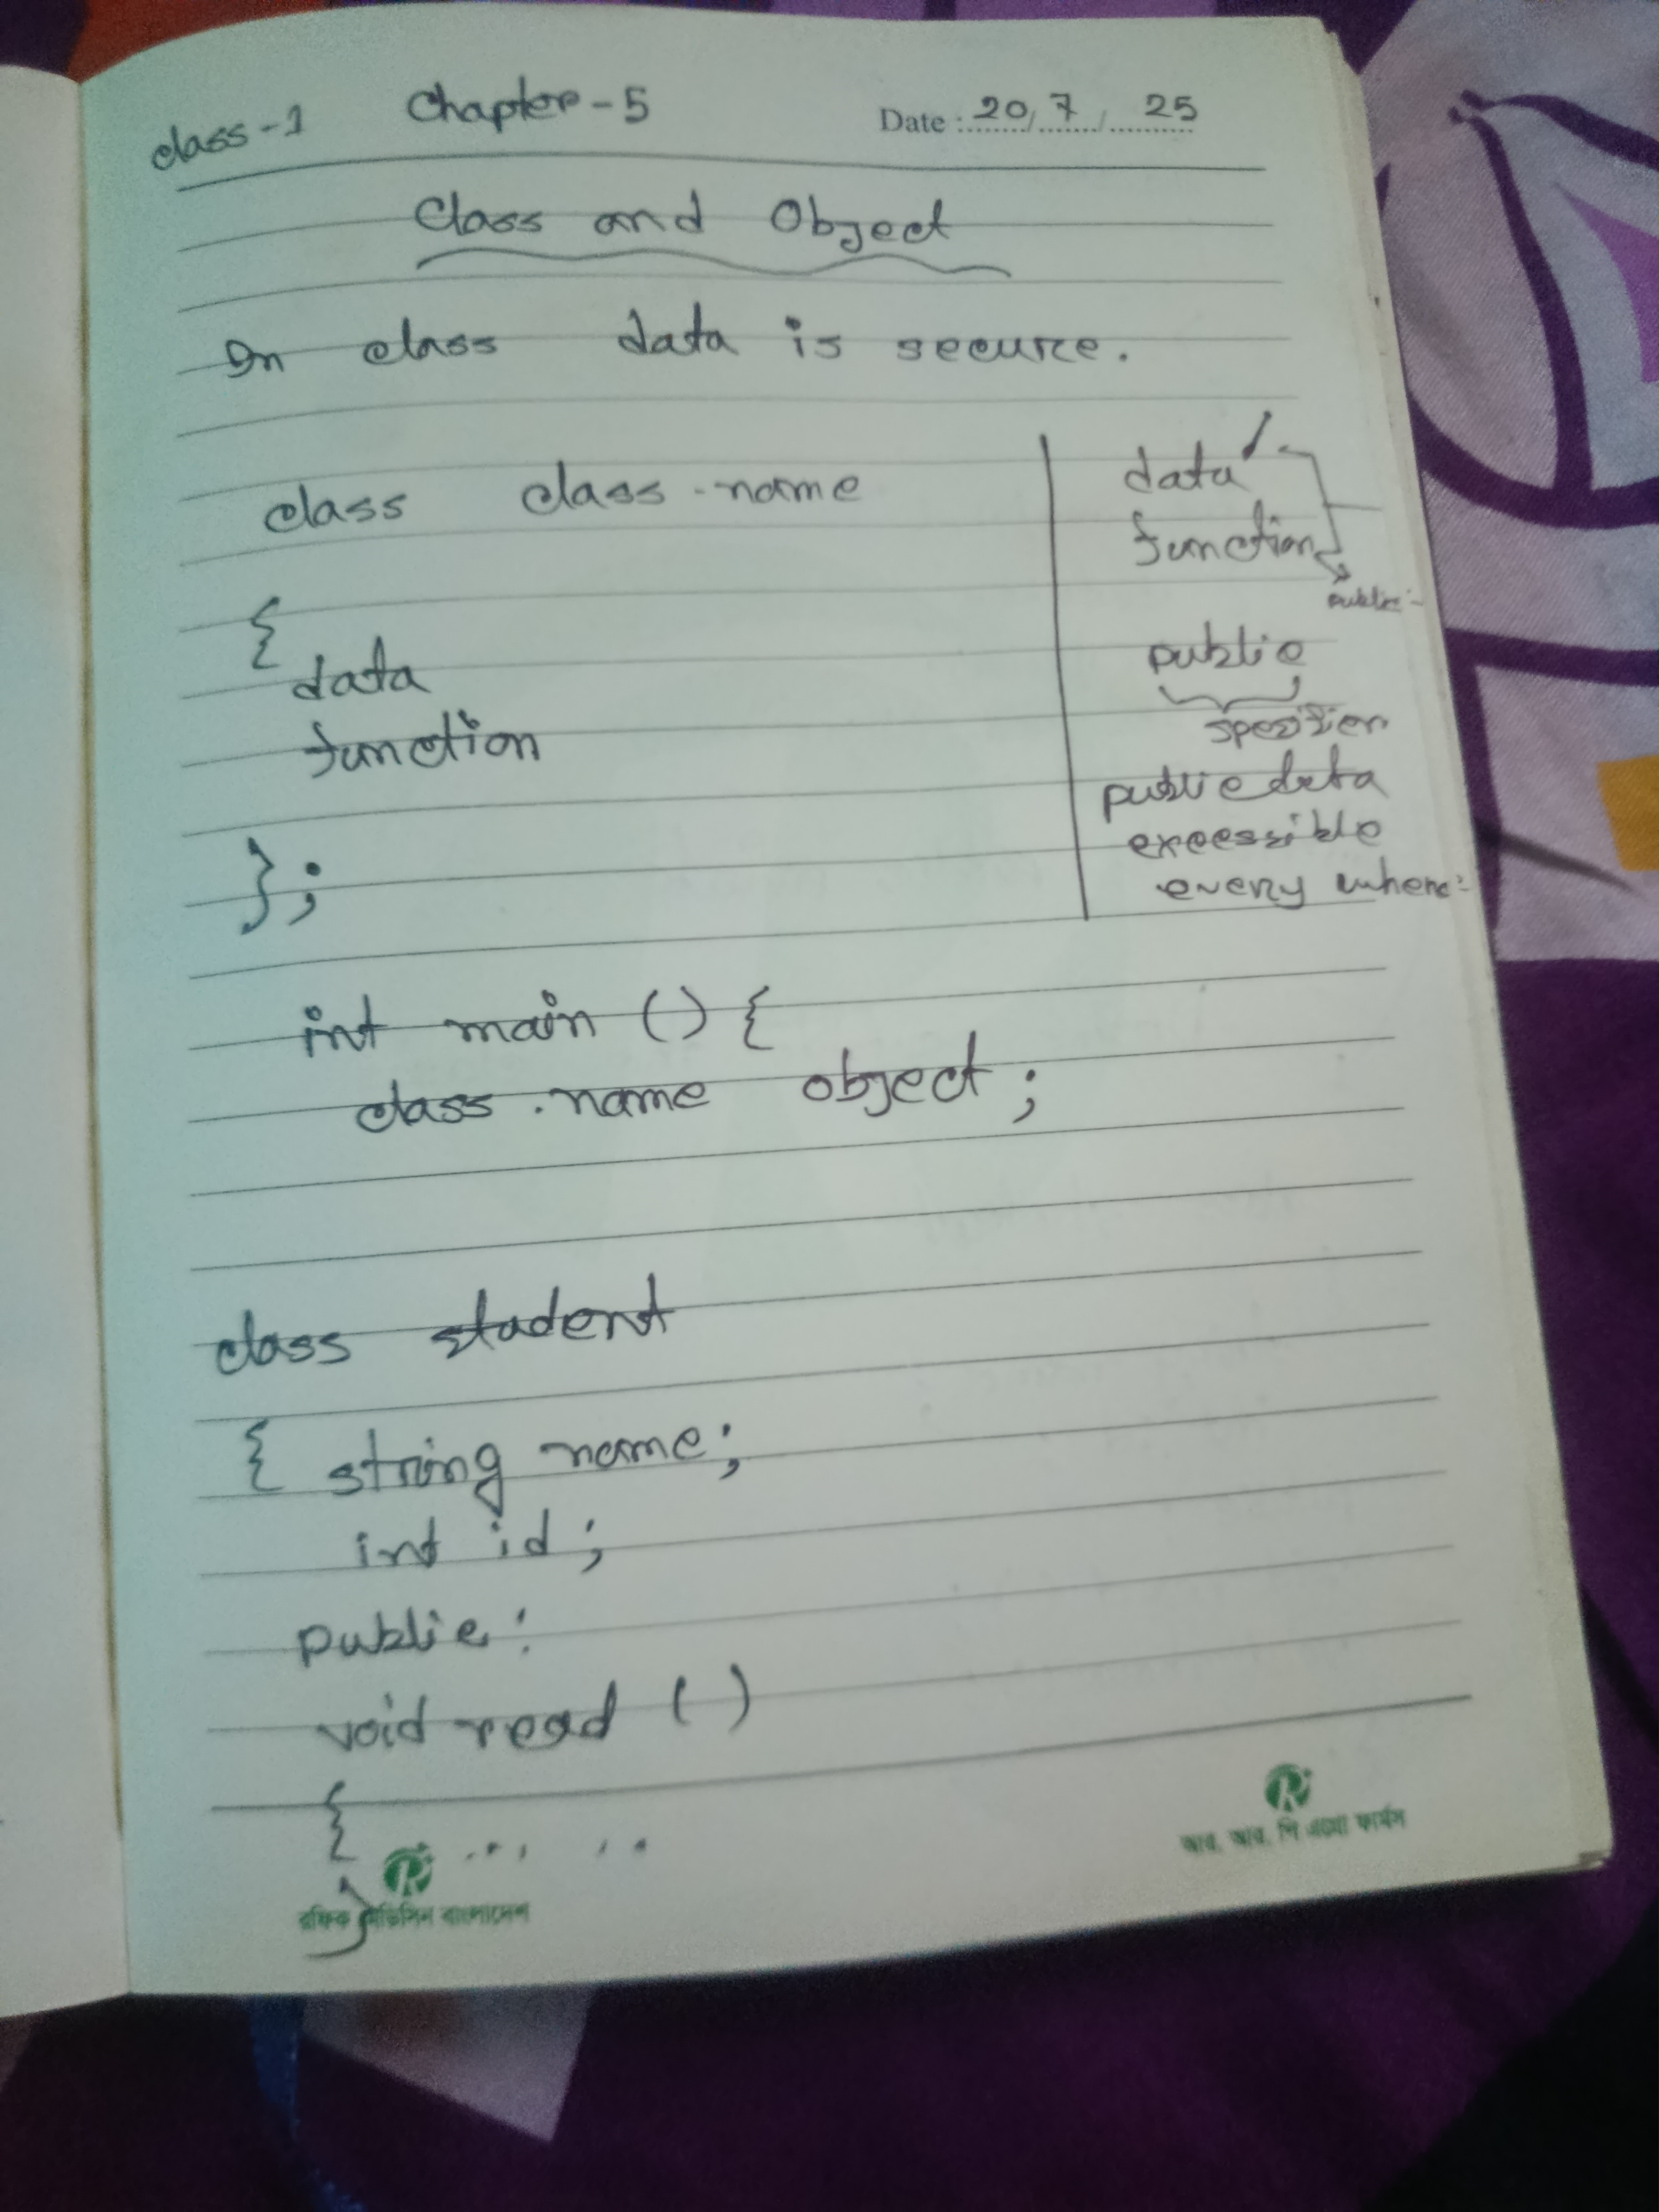 class-1 Chapter-5 Date : 20/7/25
Class and Object
In class data is secure.
class class-name
{
data
function
};
data
function
public:-
public
spesifier
public data
excessible
every where:
int main () {
class.name object;
class student
{ string name;
int id;
public:
void read ()
{ .... ..
আর. আর. পি এগ্রো ফার্মস
রফিক মেডিসিন বাংলাদেশ